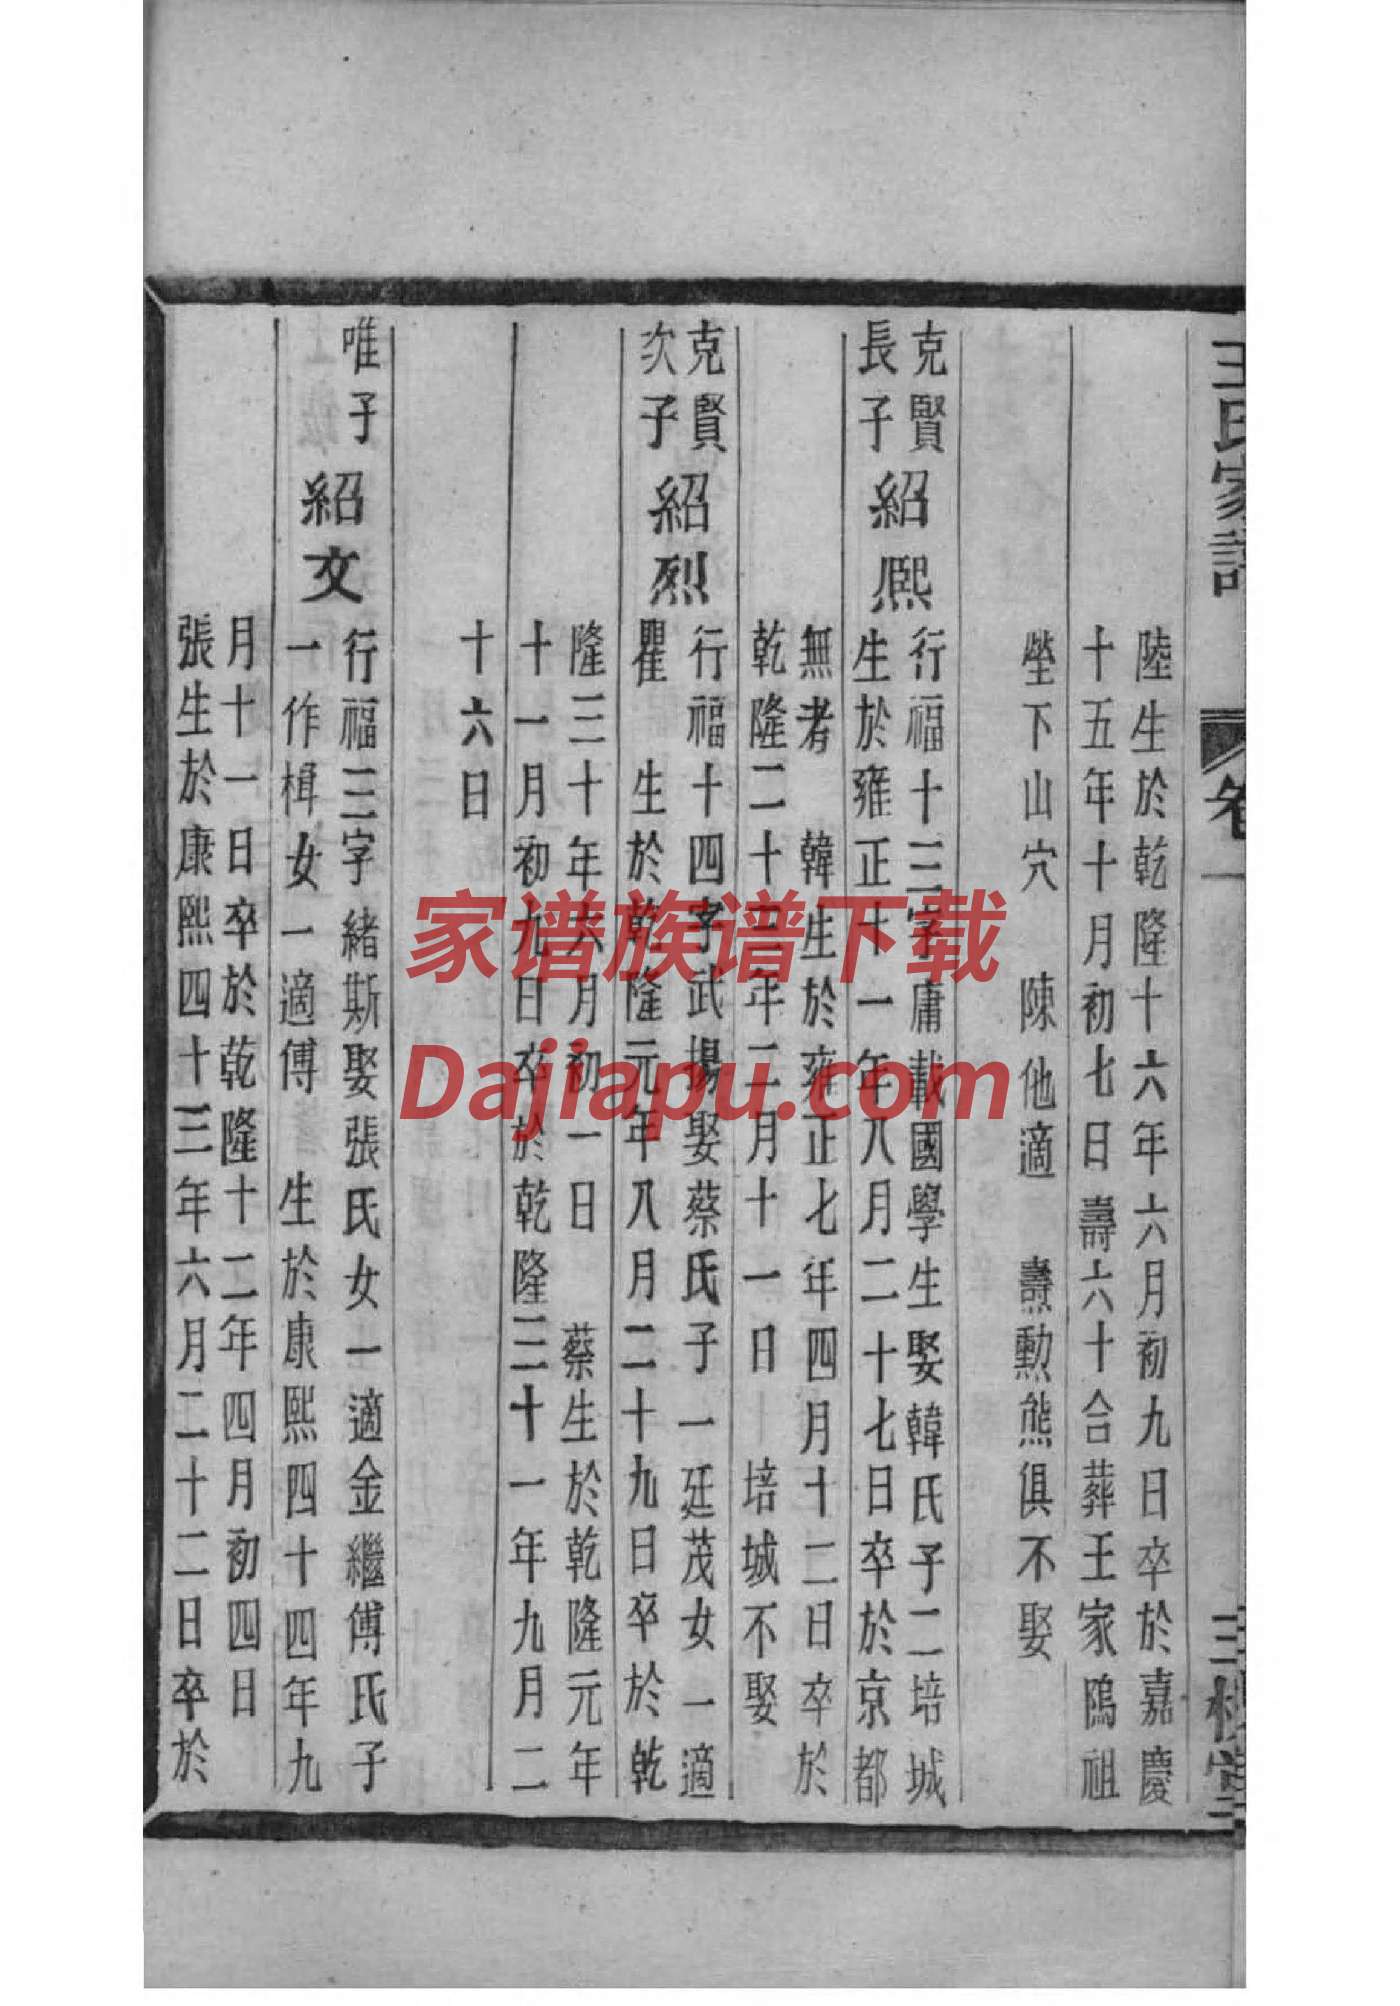 王氏家譜
卷一
三槐堂
陸生於乾隆十六年六月初九日卒於嘉慶
十五年十月初七日壽六十合葬王家隝祖
塋下山穴 陳他適 燾勳熊俱不娶
克賢
長子
紹熙
行福十三字庸載國學生娶韓氏子二培城
生於雍正十一年八月二十七日卒於京都
無考 韓生於雍正七年四月十二日卒於
乾隆二十三年二月十一日 培城不娶
克賢
次子
紹烈
行福十四字武揚娶蔡氏子一廷茂女一適
瞿 生於乾隆元年八月二十九日卒於乾
隆三十年六月初一日 蔡生於乾隆元年
十一月初九日卒於乾隆三十一年九月二
十六日
唯子
紹文
行福三字緒斯娶張氏女一適金繼傅氏子
一作楫女一適傅 生於康熙四十四年九
月十一日卒於乾隆十二年四月初四日
張生於康熙四十三年六月二十二日卒於
家谱族谱下载
Dajiapu.com